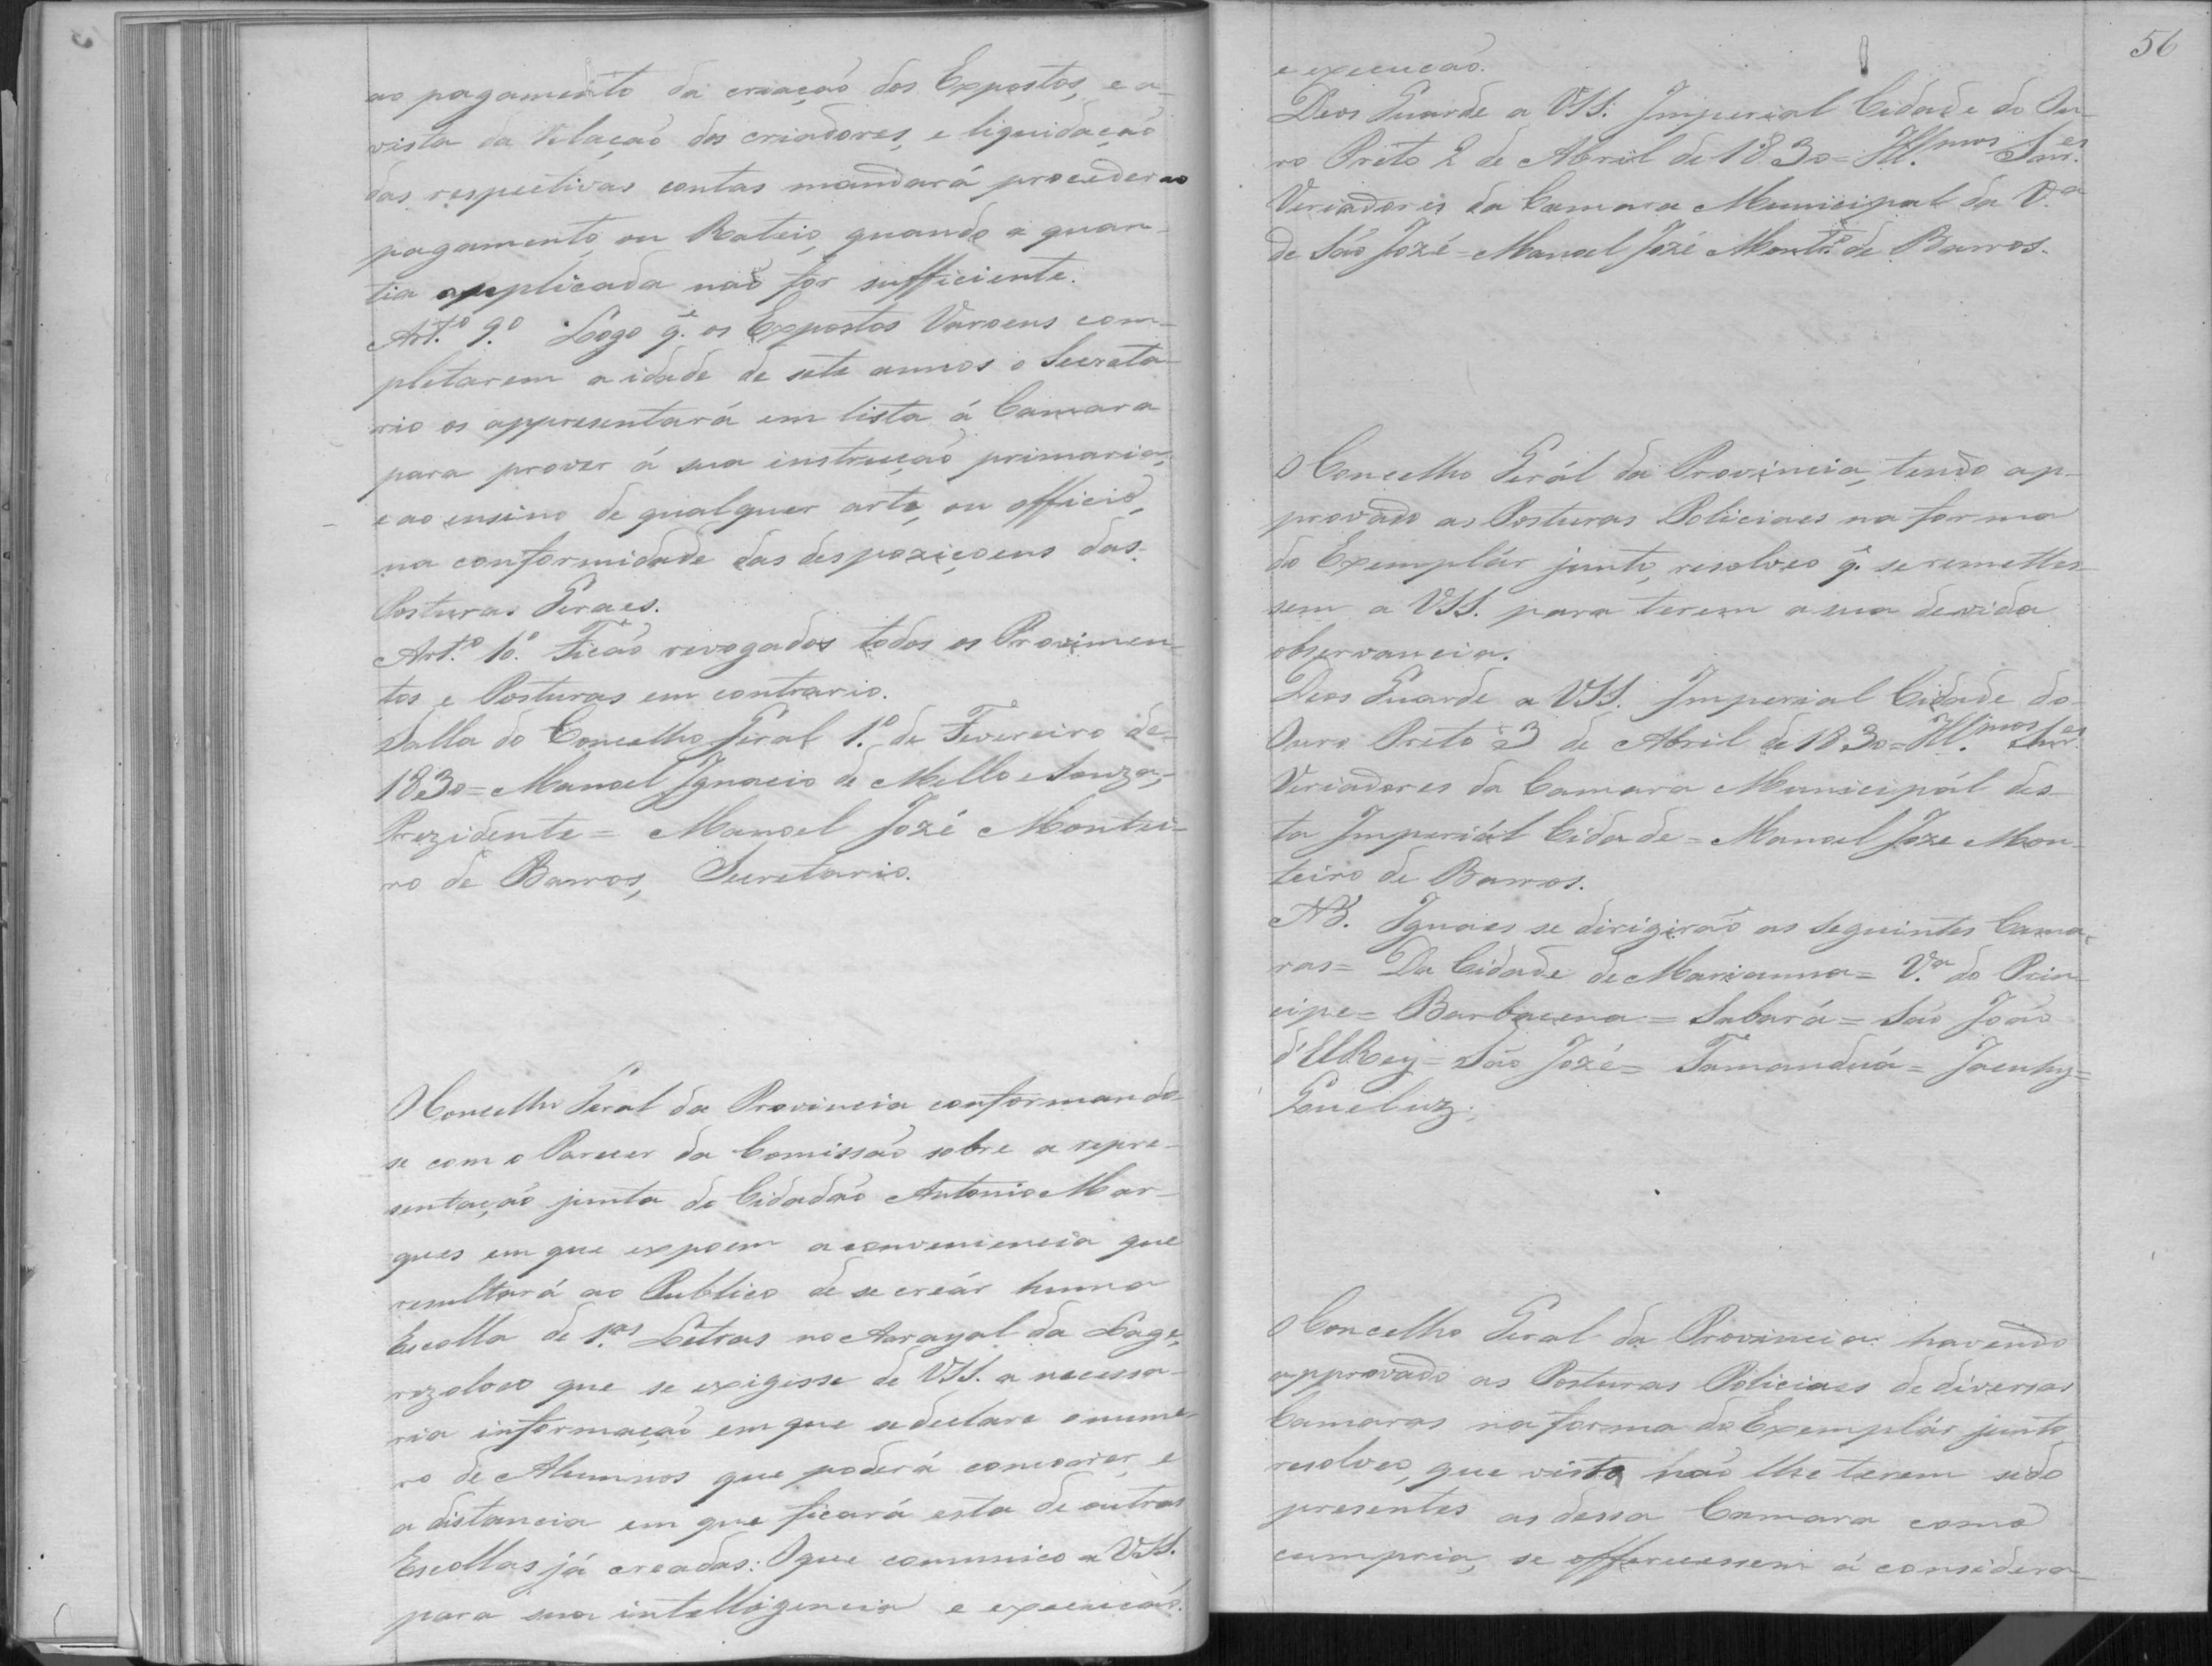 ao pagamento da criação dos Expostos, e a-
vista da relação dos criadores, e liquidação
das respectivas contas mandará proceder ao
pagamento, ou Rateio, quando a quan-
tia applicada não for sufficiente.
Art.º 9.º Logo q.e os Expostos Varoens com-
pletarem a idade de sete annos o Secreta-
rio os appresentará em lista á Camara
para prover á sua instrucção primaria,
e ao ensino de qualquer arte, ou officio,
na conformidade das despoziçoens das
Posturas Geraes.
Art.º 10.º Ficão revogados todos os Provimen-
tos, e Posturas em contrario.
Salla do Concelho Geral 1.º de Fevereiro de
1830 = Manoel Ignacio de Mello e Souza,
Prezidente = Manoel Jozé Montei-
ro de Barros, Secretario.
O Concelho Geral da Provincia conformando-
se com o Parecer da Comissão sobre a repre-
sentação junta do Cidadão Antonio Mar-
ques em que expoem a conveniencia que
resultará ao Publico de se creár huma
Escolla de 1.as Letras no Arrayal da Lage,
rezolveo que se exigisse de VSS. a necessa-
ria informação em que se declare o nume-
ro de Alumnos que poderá concorrer, e
a distancia em que ficará esta de outras
Escollas já creadas: O que communico a VSS.
para sua intelligencia e execução.
56
e execução.
Deos Guarde a VSS. Imperial Cidade do Ou-
ro Preto 2 de Abril de 1830 = Ill.mos Snr.es
Veriadores da Camara Municipal da V.a
de São Jozé = Manoel Jozé Montr.o de Barros.
O Concelho Gerál da Provincia, tendo ap-
provado as Posturas Policiaes na forma
do Exemplár junto, resolveo q.e se remettes-
sem a VSS. para terem a sua devida
observancia.
Deos Guarde a VSS. Imperial Cidade do
Ouro Preto 3 de Abril de 1830 = Ill.mos Snr.es
Veriadores da Camara Municipál des-
ta Imperiál Cidade = Manoel Joze Mon-
teiro de Barros.
NB. Iguaes se dirigirão as seguintes Cama-
ras = Da Cidade de Marianna = V.a do Prin-
cipe = Barbacena = Sabará = São João
d'ElRey = São Jozé = Tamanduá = Jacuhy =
Queluz.
O Concelho Geral da Provincia havendo
approvado as Posturas Policiaes de diversas
Camaras na forma do Exemplár junto
resolveo, que visto não lhe terem sido
presentes as dessa Camara como
cumpria, se offerecessem á considera-